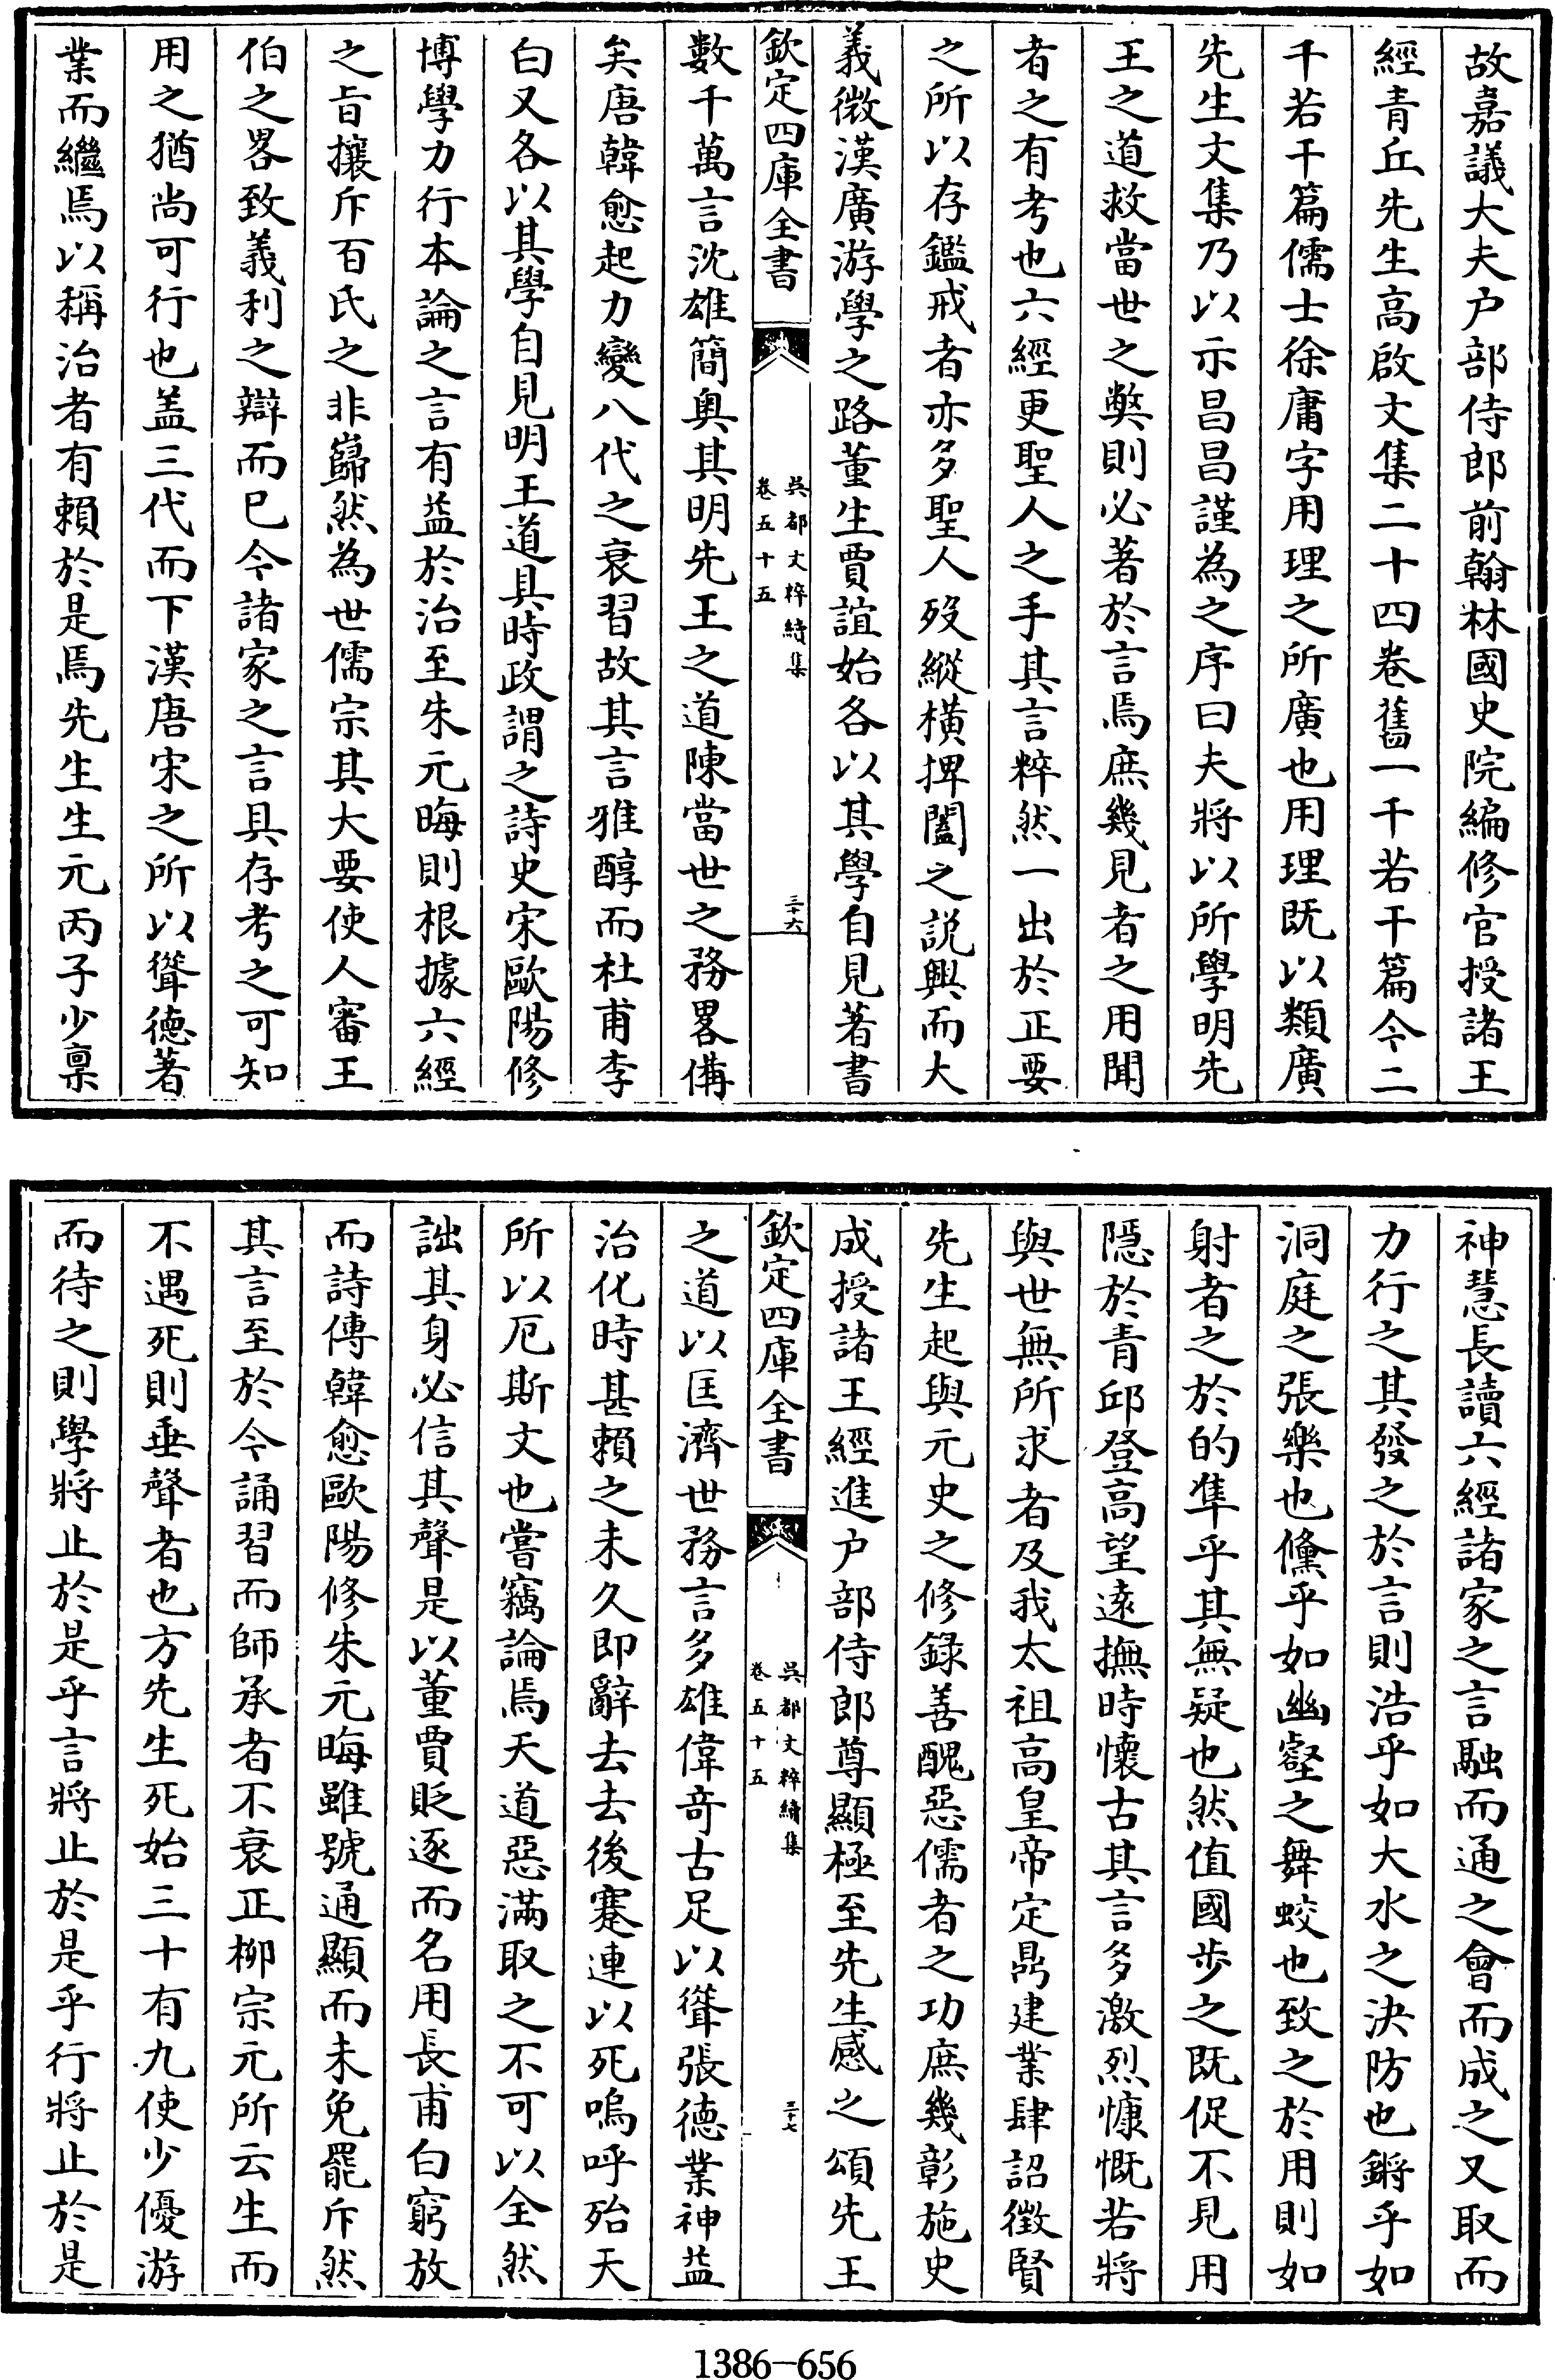 故嘉議大夫户部侍郎前翰林國史院編修官授諸王
經青丘先生高啟文集二十四卷舊一千若干篇今二
千若干篇儒士徐庸字用理之所廣也用理既以類廣
先生文集乃以示昌昌謹為之序曰夫將以所學明先
王之道救當世之弊則必著於言焉庶幾見者之用聞
者之有考也六經更聖人之手其言粹然一出於正要
之所以存鑑戒者亦多聖人歿縱橫捭闔之説興而大
義微漢廣游學之路董生賈誼始各以其學自見著書
欽定四庫全書
吳都文粹續集
卷五十五
三十六
數千萬言沈雄簡奥其明先王之道陳當世之務畧備
矣唐韓愈起力變八代之衰習故其言雅醇而杜甫李
白又各以其學自見明王道具時政謂之詩史宋歐陽修
博學力行本論之言有益於治至朱元晦則根據六經
之旨攘斥百氏之非巋然為世儒宗其大要使人審王
伯之畧致義利之辯而已今諸家之言具存考之可知
用之猶尚可行也盖三代而下漢唐宋之所以聳德著
業而繼焉以稱治者有賴於是焉先生生元丙子少稟
神慧長讀六經諸家之言融而通之會而成之又取而
力行之其發之於言則浩乎如大水之決防也鏘乎如
洞庭之張樂也儵乎如幽壑之舞蛟也致之於用則如
射者之於的凖乎其無疑也然值國步之既促不見用
隱於青邱登高望遠撫時懷古其言多激烈慷慨若將
與世無所求者及我太祖高皇帝定鼎建業肆詔徵賢
先生起與元史之修錄善醜惡儒者之功庶幾彰施史
成授諸王經進户部侍郎尊顯極至先生感之頌先王
欽定四庫全書
吳都文粹續集
卷五十五
三十七
之道以匡濟世務言多雄偉奇古足以聳張德業神益
治化時甚賴之未久即辭去去後蹇連以死嗚呼殆天
所以厄斯文也嘗竊論焉天道惡滿取之不可以全然
詘其身必信其聲是以董賈貶逐而名用長甫白窮放
而詩傳韓愈歐陽修朱元晦雖號通顯而未免罷斥然
其言至於今誦習而師承者不衰正柳宗元所云生而
不遇死則垂聲者也方先生死始三十有九使少優游
而待之則學將止於是乎言將止於是乎行將止於是
1386-656